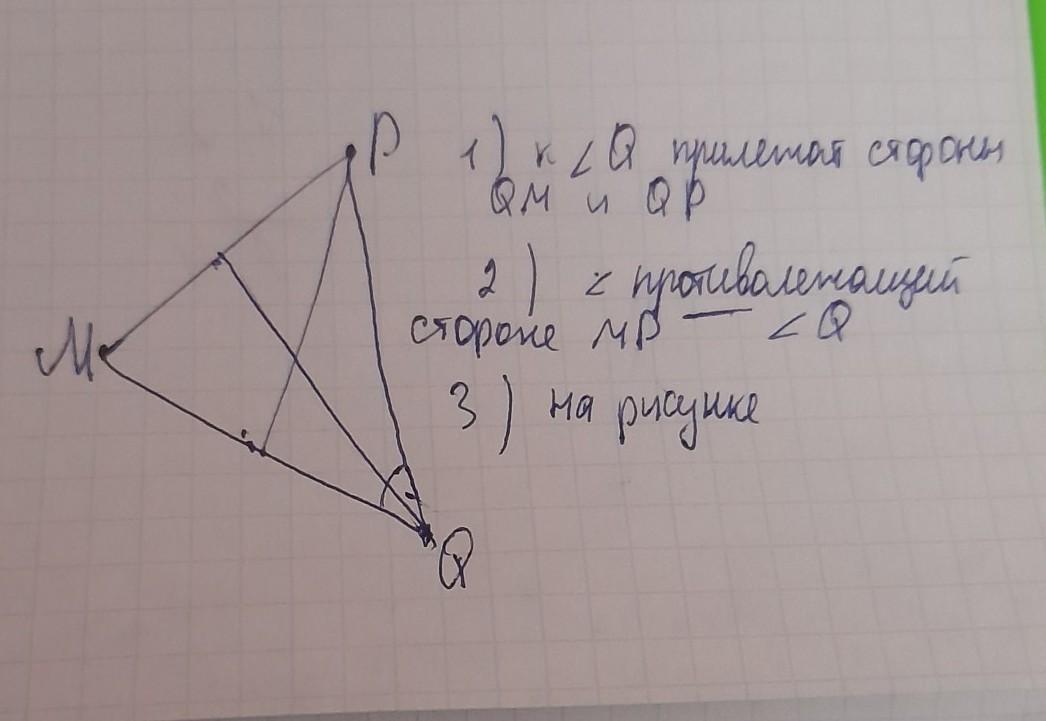 P
1) к ∠Q прилежат стороны
QM и QP
2) ∠ противолежащий
стороне MP — ∠Q
3) на рисунке
M
Q